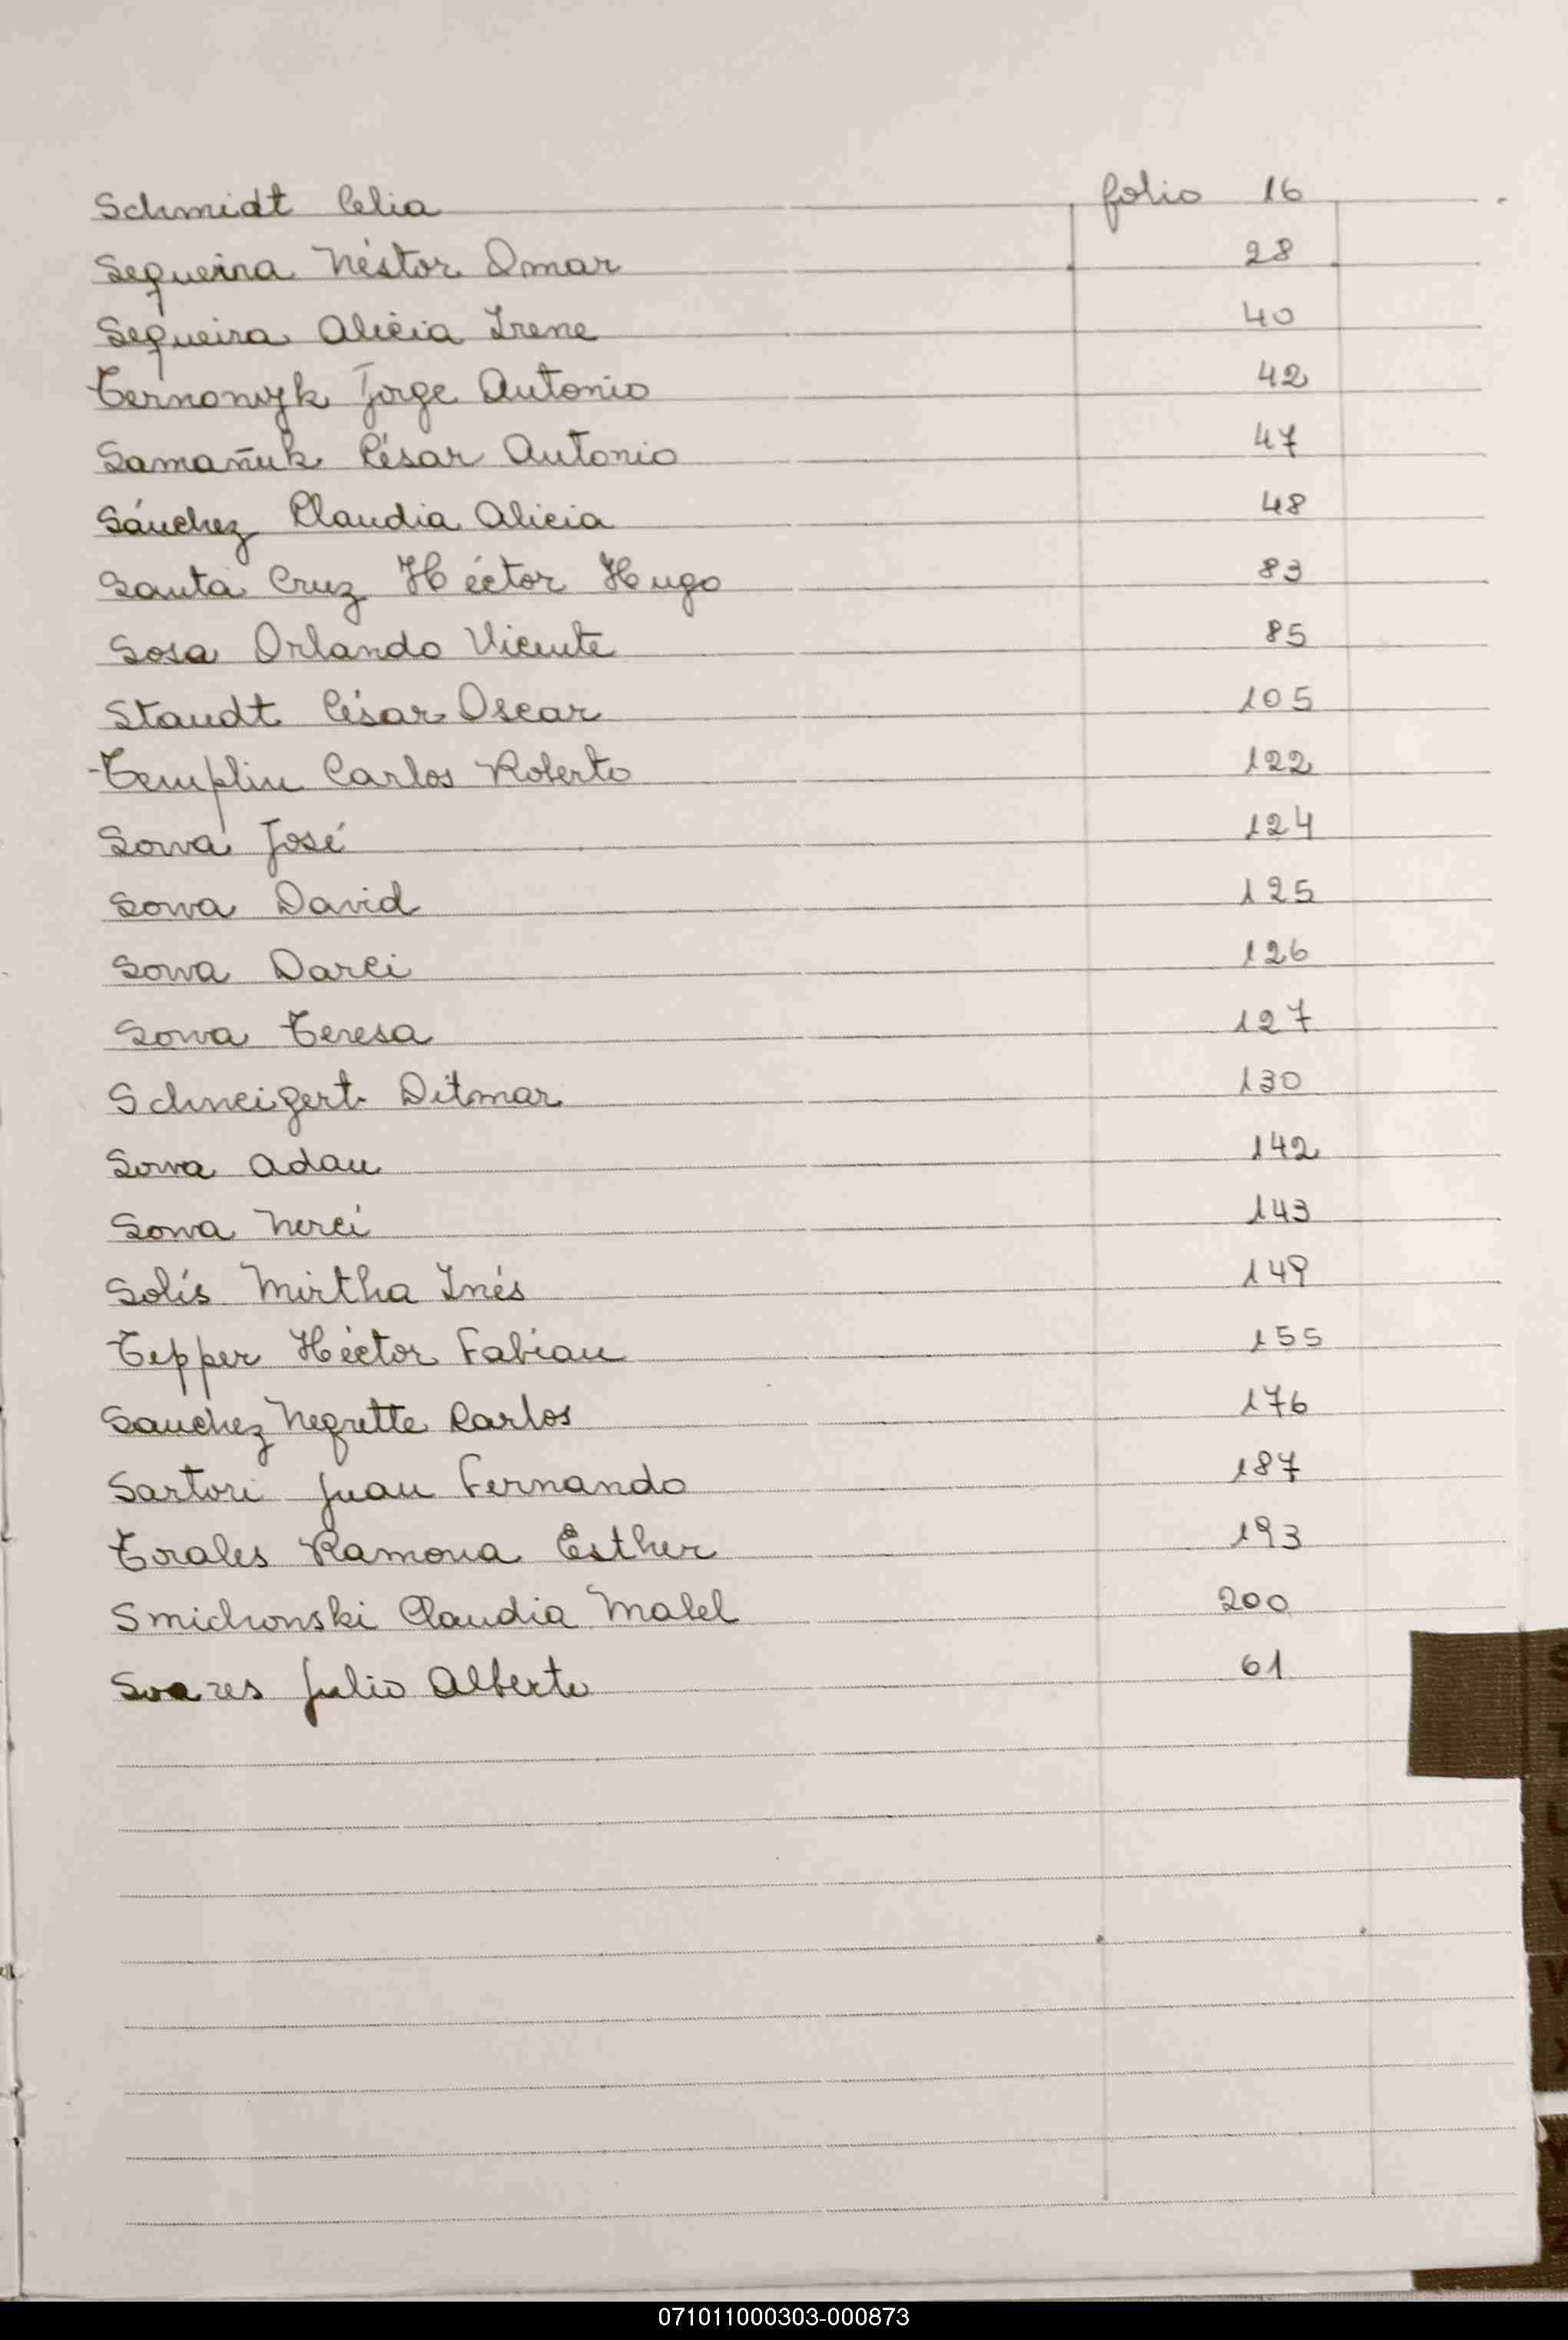 Schmidt Celia folio 16
Sequeira Néstor Omar 28
Sequeira Alicia Irene 40
Ternowyk Jorge Antonio 42
Samañuk César Antonio 47
Sánchez Claudia Alicia 48
Santa Cruz Héctor Hugo 83
Sosa Orlando Vicente 85
Staudt César Oscar 105
Templin Carlos Roberto 122
Sowa José 124
Sowa David 125
Sowa Darci 126
Sowa Teresa 127
Schneigert Ditmar 130
Sowa Adan 142
Sowa Nerci 143
Solís Mirtha Inés 149
Tepper Héctor Fabian 155
Sanchez Negrette Carlos 176
Sartori Juan Fernando 187
Torales Ramona Esther 193
Smichowski Claudia Mabel 200
Soares Julio Alberto 61
071011000303-000873